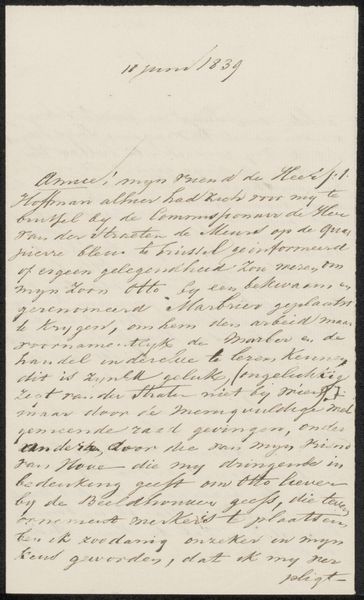 18 Junij 1839
Amice! mijn vriend de Heer J. J.
Hoffman alhier had zich voor my te
brussel by de Commissionair de Heer
van der Straeten de Meurs op de Quai
pierre bleue te brussel geinformeerd
of ergeen gelegendheid zou wesen om
mijn Zoon Otto by een bekwaam en
gerenomeerd Marbrier geplaatst
te krygen, om hem den arbeid maar
voornamentlyk de Marber en de
handel inderzelve te leeren kennen,
dit is zynlk geluk, (ongelukkig
zegt van der Straten niet by
maar door de menigvuldige wel
gemeende raad gevingen, onder
anderen door die van mijn vriend
van Hove die my dringende in
bedenking geeft om Otto liever
by de Beeldhouwer geefs, die tevens
ornement werker is te plaatsen,
ben ik zoodanig onzeker in mijn
keus geworden, dat ik my ver
pligt-